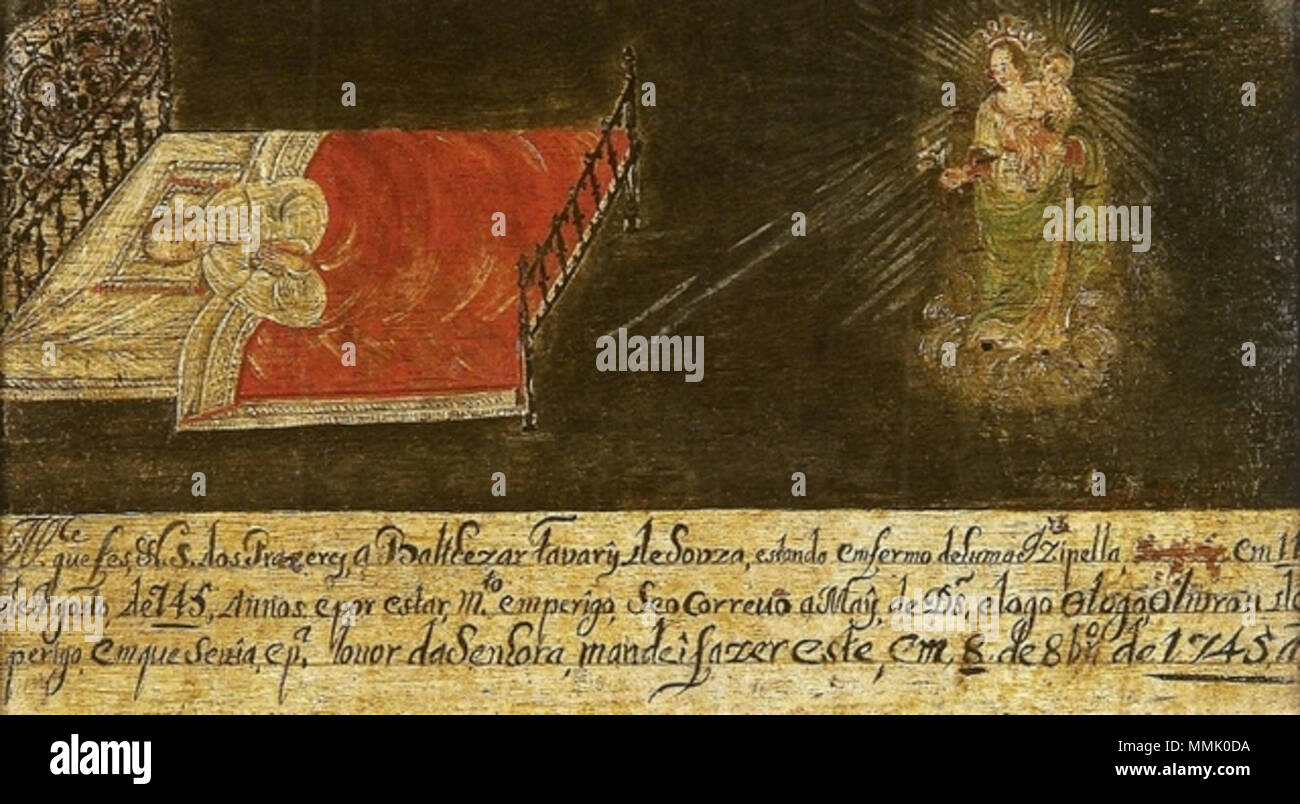 M.ce que fes, N. S. dos Prazerez, a Balthezar Tavarŷ de Souza, estando emfermo de huma Izipella, em 11
de Agosto de 745, Annos e por estar, m.to em perigo, Se o Correuo a Maŷ, de Ds, e logo O logo, O livrou do
perigo, em que Sevia, e p.a louor da Senhora, mandei fazer este, em, 8, de 8bro de 1745 a
alamy
Image ID: MMK0DA
www.alamy.com